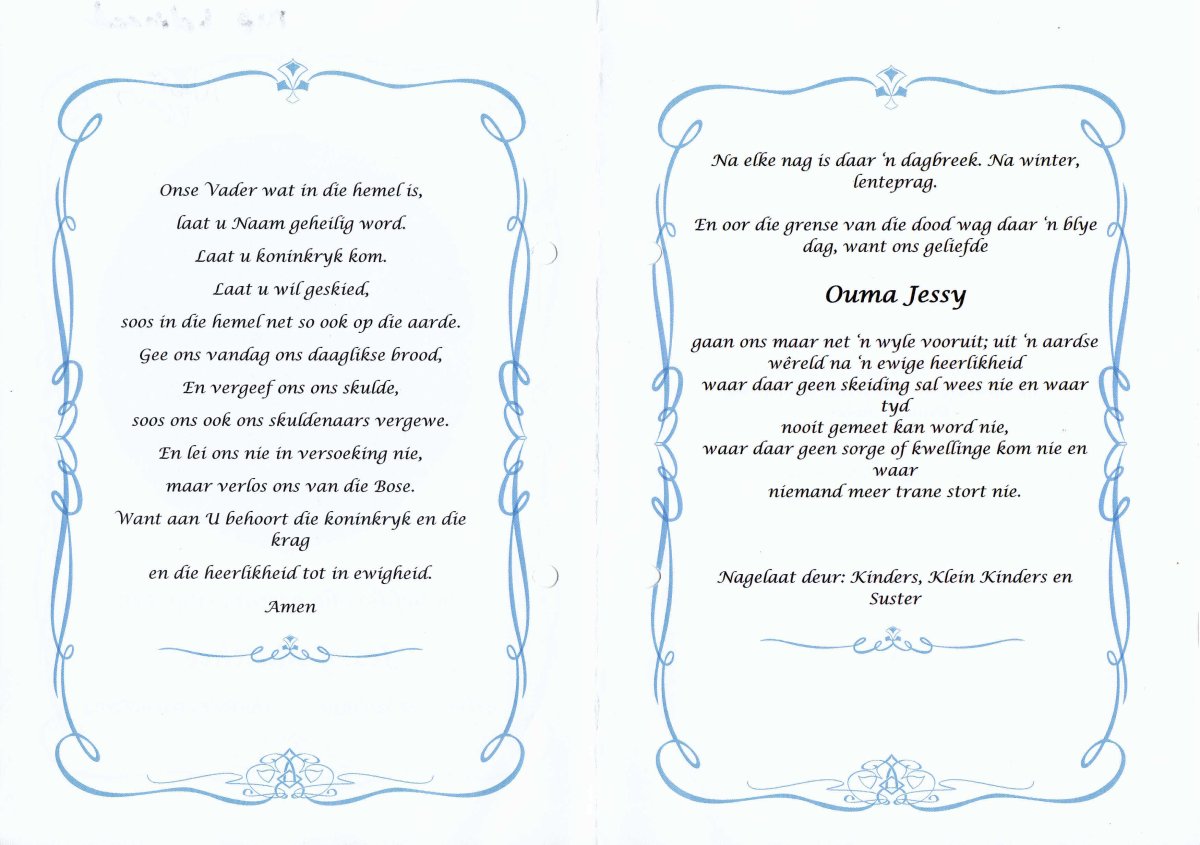 Onse Vader wat in die hemel is,
laat u Naam geheilig word.
Laat u koninkryk kom.
Laat u wil geskied,
soos in die hemel net so ook op die aarde.
Gee ons vandag ons daaglikse brood,
En vergeef ons ons skulde,
soos ons ook ons skuldenaars vergewe.
En lei ons nie in versoeking nie,
maar verlos ons van die Bose.
Want aan U behoort die koninkryk en die
krag
en die heerlikheid tot in ewigheid.
Amen
Na elke nag is daar ‘n dagbreek. Na winter,
lenteprag.
En oor die grense van die dood wag daar ‘n blye
dag, want ons geliefde
Ouma Jessy
gaan ons maar net ‘n wyle vooruit; uit ‘n aardse
wêreld na ‘n ewige heerlikheid
waar daar geen skeiding sal wees nie en waar
tyd
nooit gemeet kan word nie,
waar daar geen sorge of kwellinge kom nie en
waar
niemand meer trane stort nie.
Nagelaat deur: Kinders, Klein Kinders en
Suster